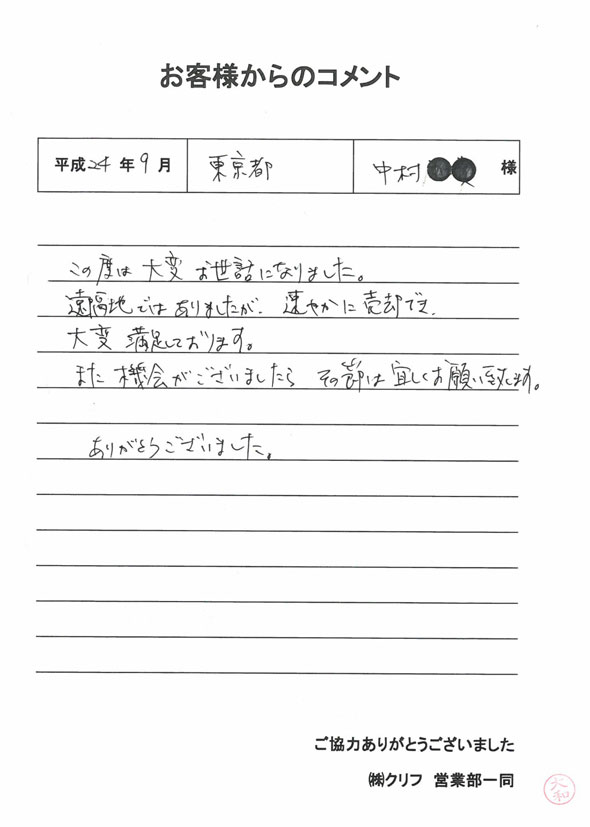 お客様からのコメント
平成24年9月 東京都 中村●● 様
この度は大変お世話になりました。
遠隔地ではありましたが、速やかに売却でき、
大変満足しております。
また機会がございましたらその節は宜しくお願い致します。
ありがとうございました。
ご協力ありがとうございました
㈱クリフ 営業部一同
大和